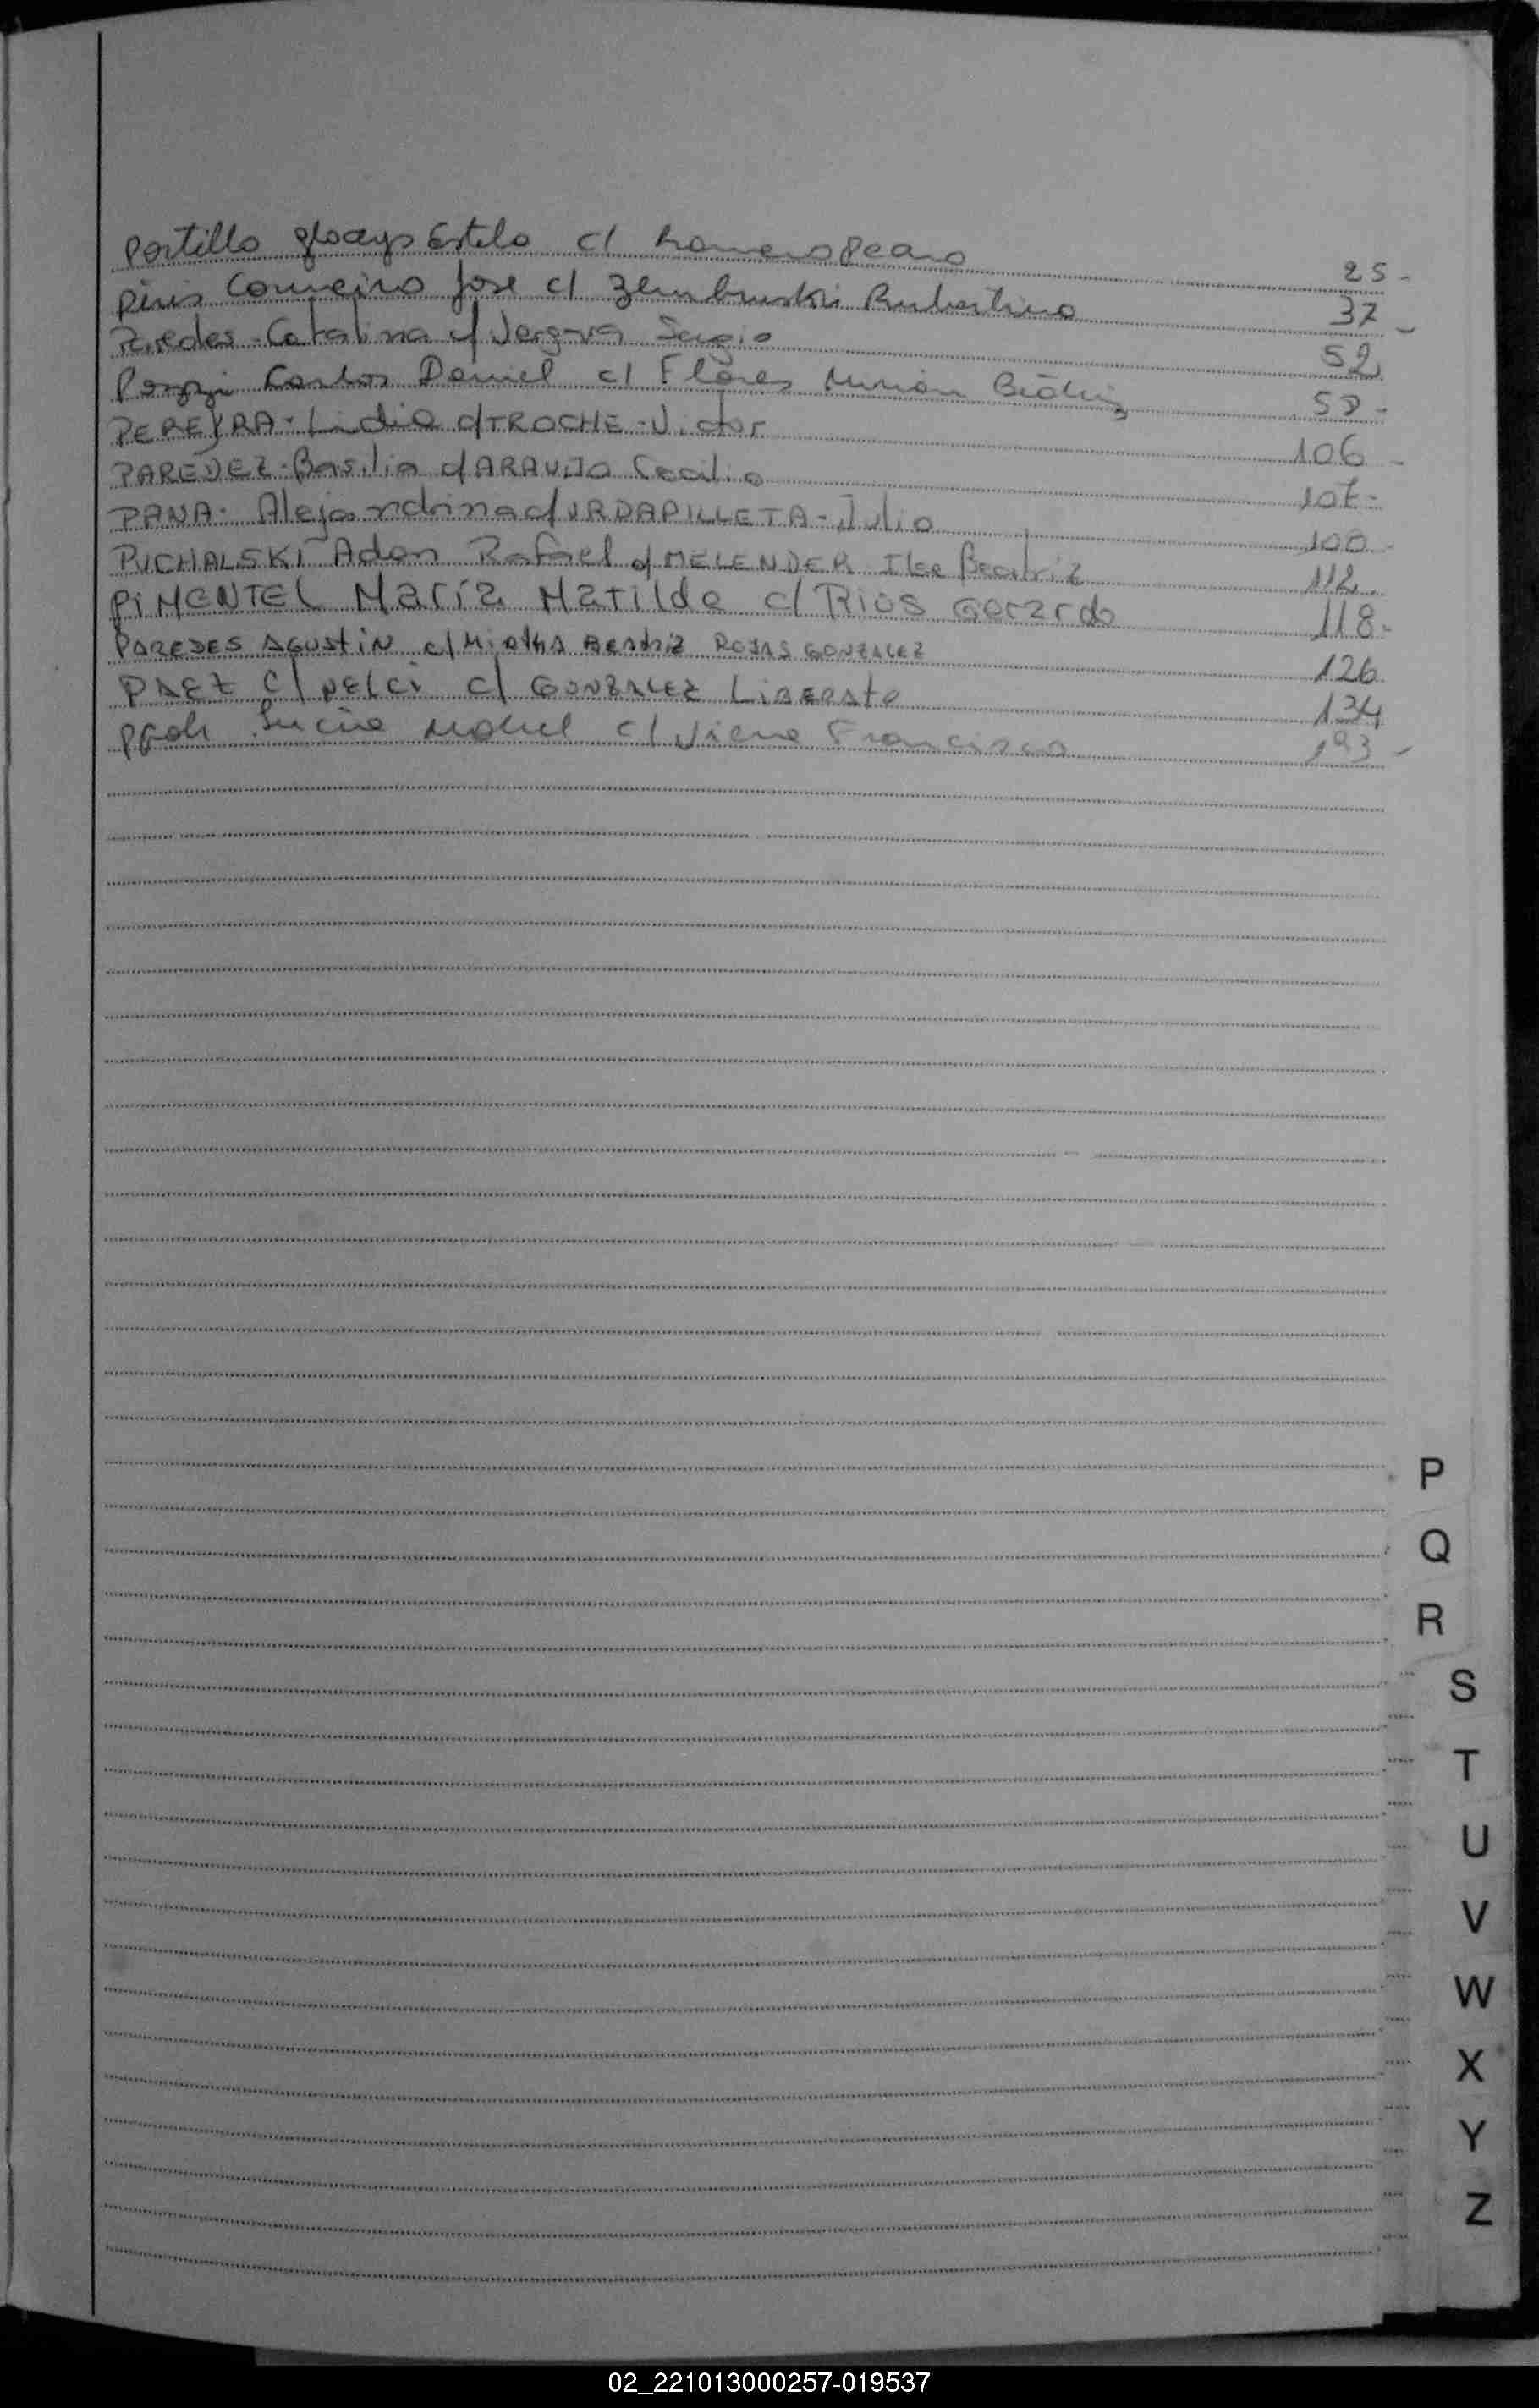 Portillo gladys Estela c/ Romero Pedro 25-
Piris Carneiro Jose c/ Zembruski 37
Paredes - Catalina c/ Vergara Sergio 52
Pozzi Carlos Daniel c/ Flores Mirian Beatriz 59-
PEREYRA - Lidia c/ TROCHE - Victor 106-
PAREDEZ - Basilia c/ ARAUJO Cecilio 107-
PANA - Alejandrina c/ URDAPILLETA - Julio 100-
PUCHALSKI Adan Rafael c/ MELENDER Ilse Beatriz 112
PIMENTEL María Matilde c/ Rios Gerardo 118-
PAREDES AGUSTIN c/ BEATRIZ ROJAS GONZALEZ 126
PAEZ c/ NELCI c/ GONZALEZ LIBERATO 134
c/ Francisco 193-
P
Q
R
S
T
U
V
W
X
Y
Z
02_221013000257-019537